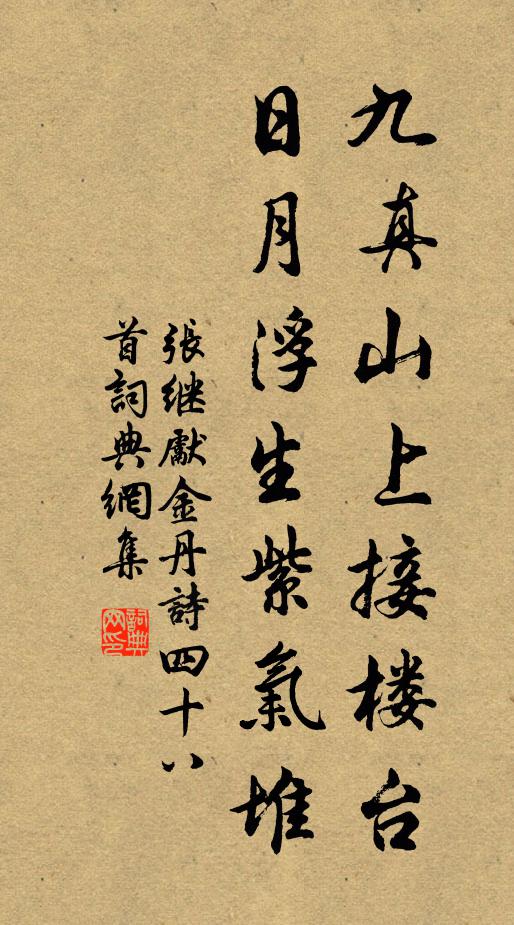 九真山上接楼台
日月浮生紫氣堆
張继獻金丹詩四十八
首詞典網集
詞典
网印